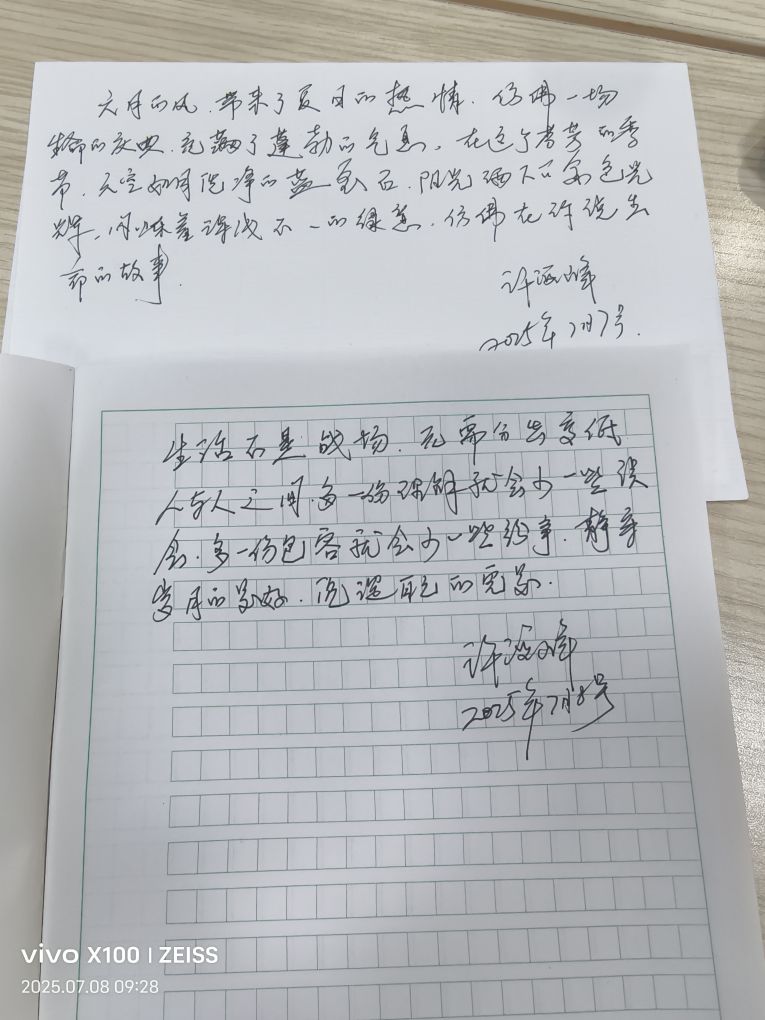 六月的风,带来了夏日的热情.仿佛一场
生命的庆典,充满了蓬勃的气息,在这个芳的季
节,天空如同洗净的蓝宝石,阳光洒下的金色光
辉,闪烁着深浅不一的绿意,仿佛在诉说生
命的故事.
许海峰
2025年7月7号.
生活不是战场,无需分出高低
人与人之间,多一份理解就会少一些误
会.多一份包容就会少一些纷争.静守
岁月的美好.
许海峰
2025年7月8号
vivo X100 | ZEISS
2025.07.08 09:28